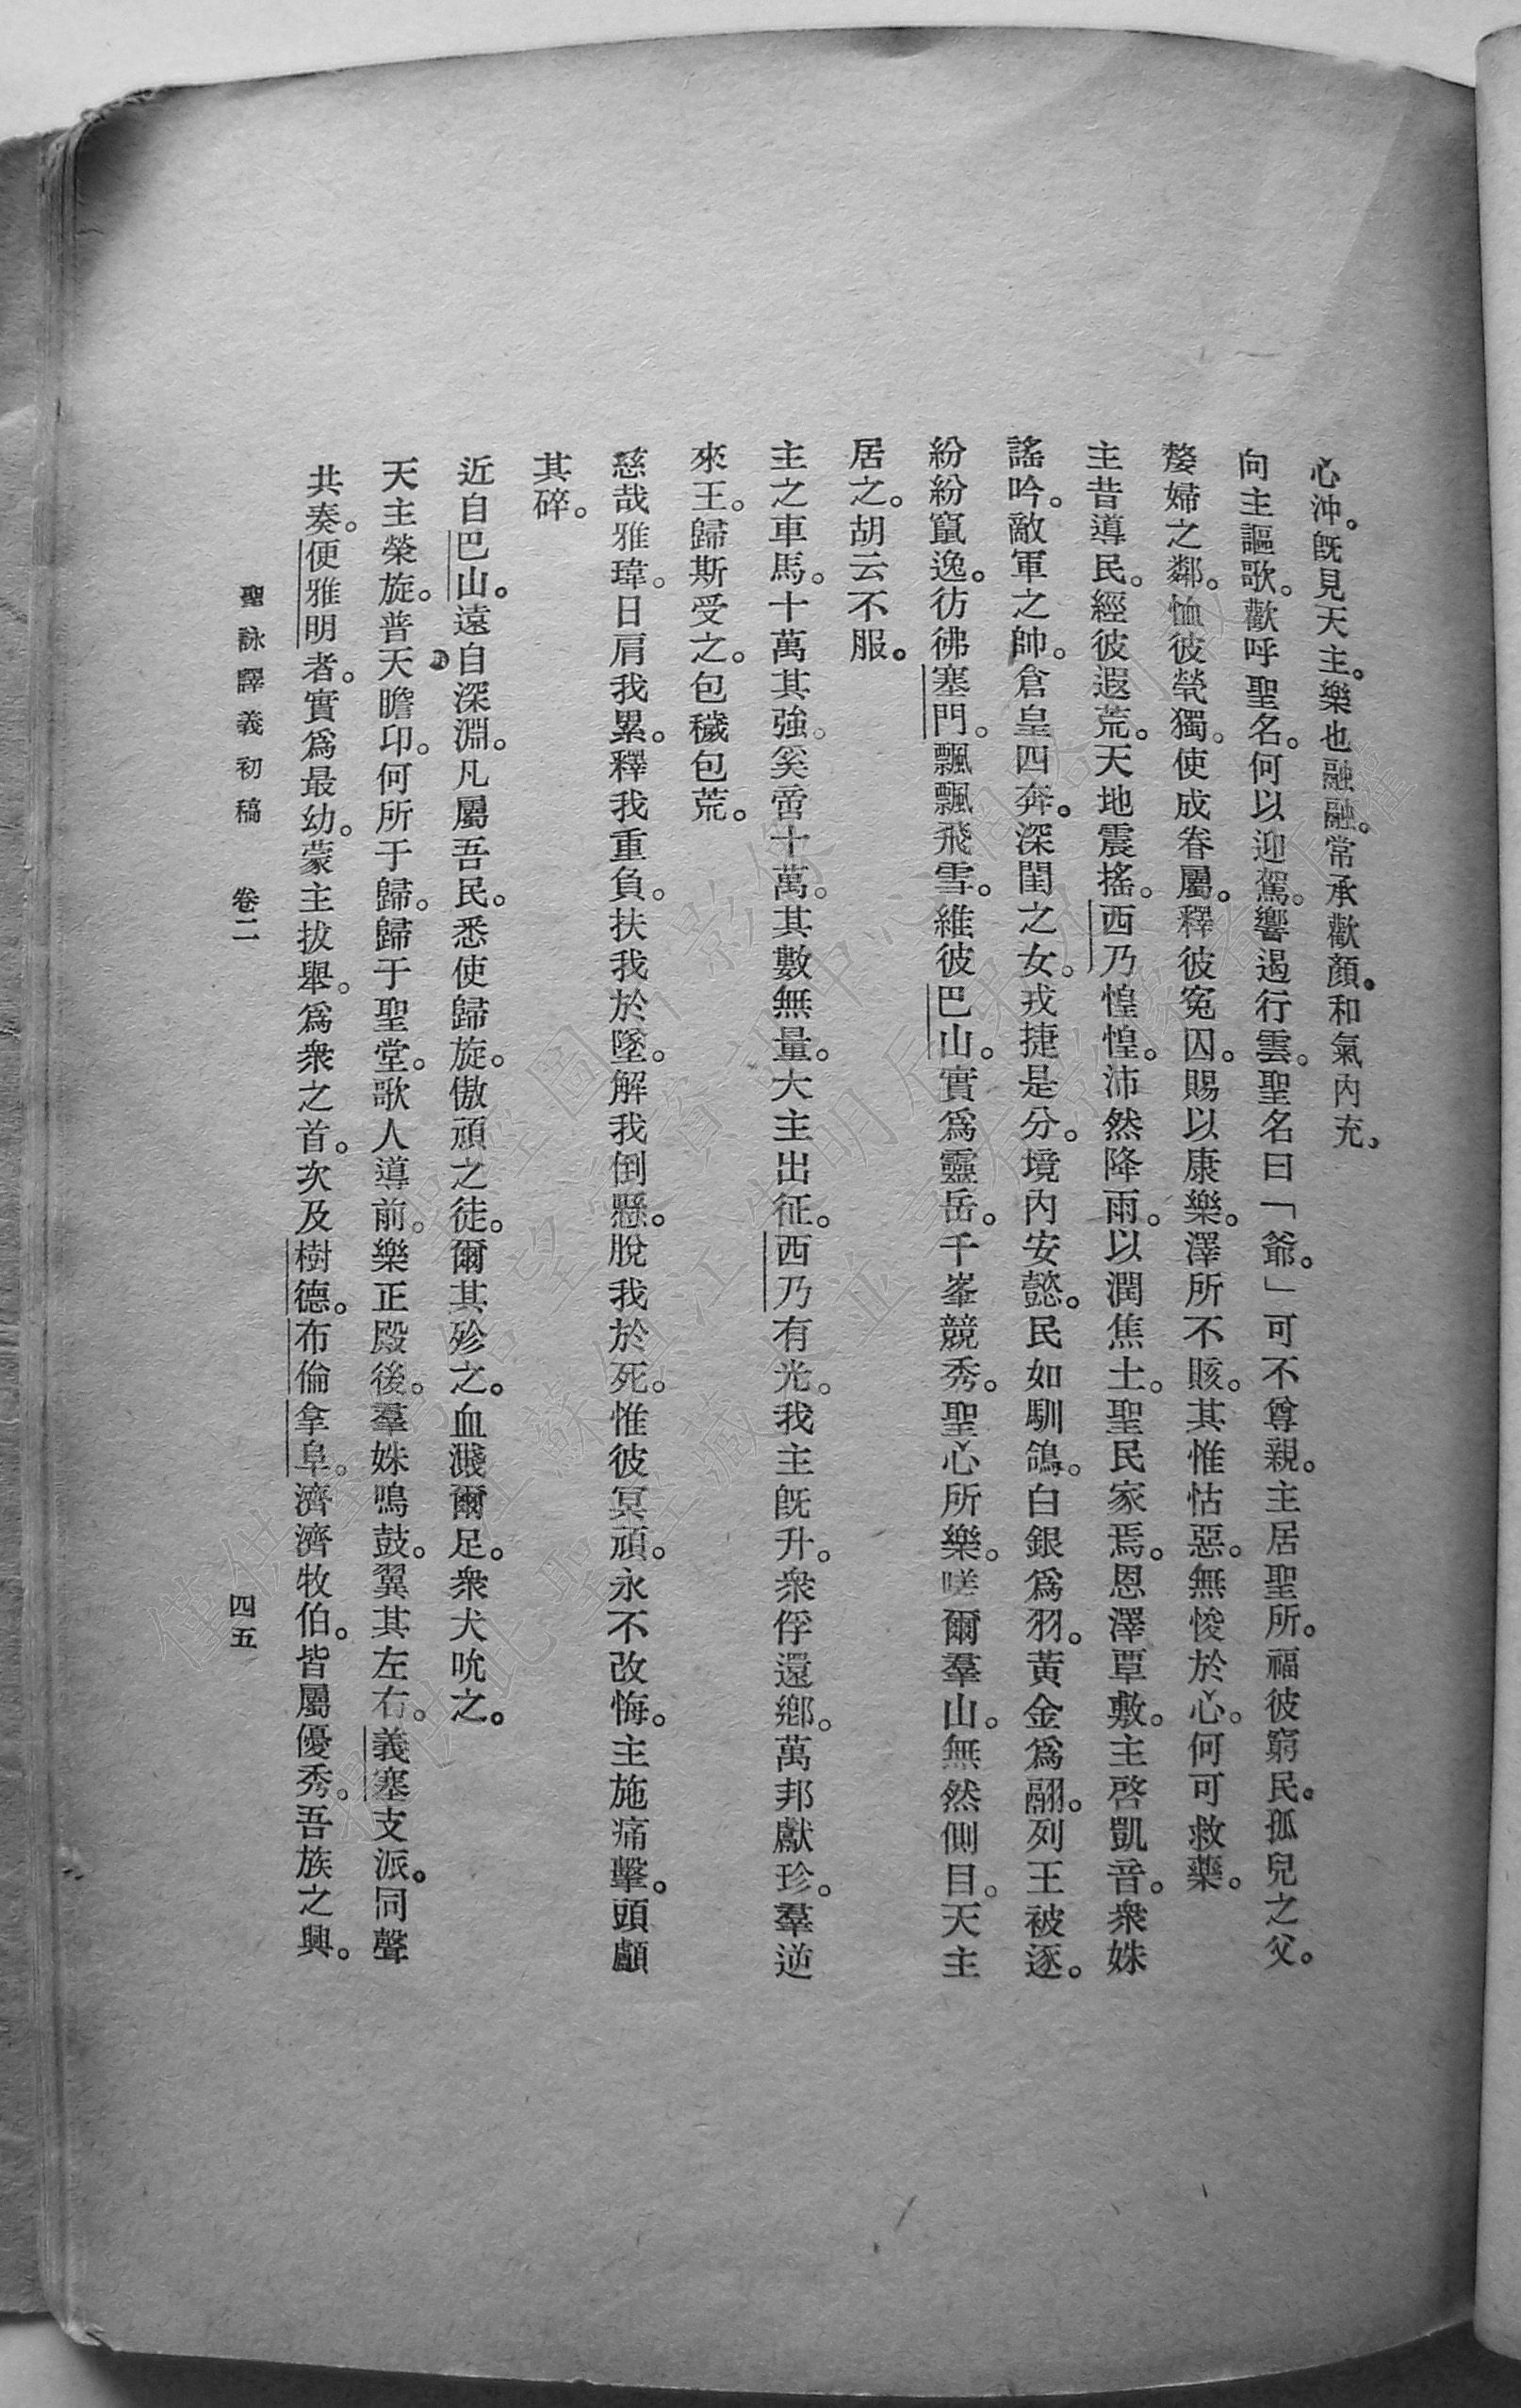 心沖。旣見天主。樂也融融。常承歡顏。和氣內充。
向主謳歌。歡呼聖名。何以迎駕。響遏行雲。聖名曰「爺。」可不尊親。主居聖所。福彼窮民。孤兒之父。
嫠婦之鄰。恤彼煢獨。使成眷屬。釋彼寃囚。賜以康樂。澤所不賅。其惟怙惡。無悛於心。何可救藥。
主昔導民。經彼遐荒。天地震搖。西乃惶惶。沛然降雨。以潤焦土。聖民家焉。恩澤覃敷。主啓凱音。衆姝
謠吟。敵軍之帥。倉皇四奔。深閨之女。戎捷是分。境內安懿。民如馴鴿。白銀爲羽。黃金爲翮。列王被逐。
紛紛竄逸。彷彿塞門。飄飄飛雪。維彼巴山。實爲靈岳。千峯競秀。聖心所樂。嗟爾羣山。無然側目。天主
居之。胡云不服。
主之車馬。十萬其強。奚啻十萬。其數無量。大主出征。西乃有光。我主旣升。衆俘還鄉。萬邦獻珍。羣逆
來王。歸斯受之。包穢包荒。
慈哉雅瑋。日肩我累。釋我重負。扶我於墜。解我倒懸。脫我於死。惟彼冥頑。永不改悔。主施痛擊。頭顱
其碎。
近自巴山。遠自深淵。凡屬吾民。悉使歸旋。傲頑之徒。爾其殄之。血濺爾足。衆犬吮之。
天主榮旋。普天瞻印。何所于歸。歸于聖堂。歌人導前。樂正殿後。羣姝鳴鼓。翼其左右。義塞支派。同聲
共奏。便雅明者。實爲最幼。蒙主拔舉。爲衆之首。次及樹德。布倫拿阜。濟濟牧伯。皆屬優秀。吾族之興。
聖詠譯義初稿 卷二 四五